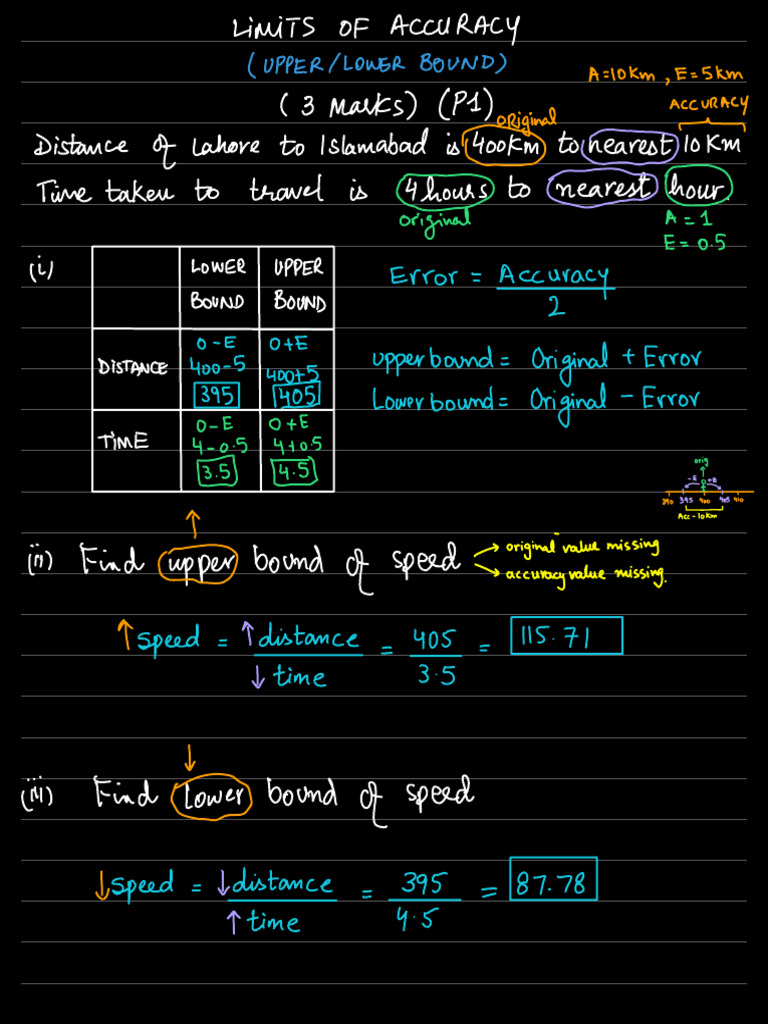 LIMITS OF ACCURACY
(UPPER/LOWER BOUND)
A=10Km, E=5km
(3 Marks) (P1)
original
ACCURACY
Distance of Lahore to Islamabad is 400Km to nearest 10Km
Time taken to travel is 4 hours to nearest hour.
original
A=1
E=0.5
(i)
LOWER BOUND UPPER BOUND
DISTANCE
O-E O+E
400-5 400+5
395 405
TIME
O-E O+E
4-0.5 4+0.5
3.5 4.5
Error = Accuracy / 2
upper bound = Original + Error
Lower bound = Original - Error
orig
-E +E
390 395 400 405 410
Acc-10km
↑
(ii) Find upper bound of speed
→ original value missing
→ accuracy value missing.
↑ speed = ↑ distance / ↓ time = 405 / 3.5 = 115.71
↓
(iii) Find lower bound of speed
↓ speed = ↓ distance / ↑ time = 395 / 4.5 = 87.78